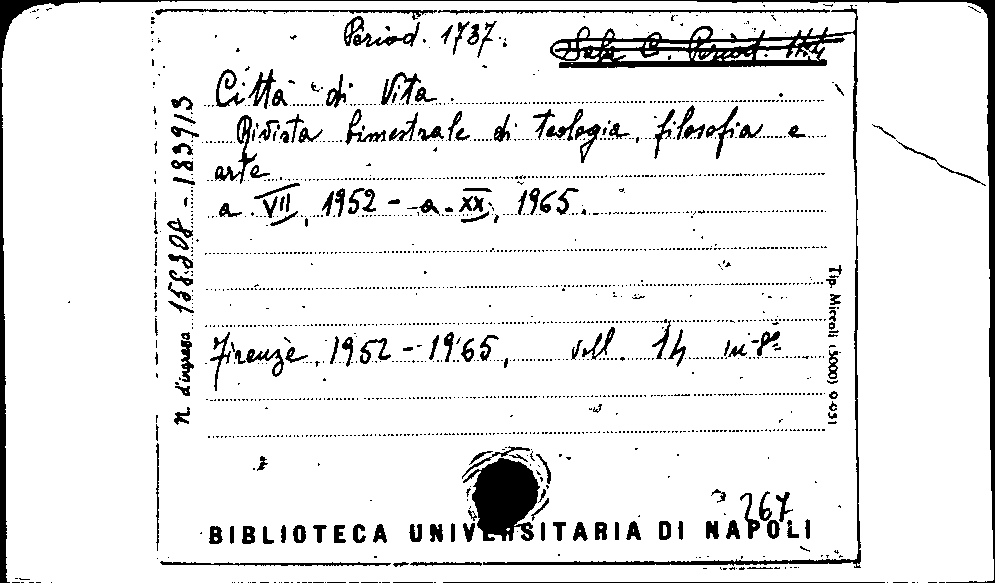 Period. 1737.
Sala C. Period. 114
Città di Vita.
Rivista bimestrale di teologia, filosofia e
arte
a. VII, 1952 - a. XX, 1965.
Firenze, 1952 - 1965, voll. 14 in-8°
267
BIBLIOTECA UNIVERSITARIA DI NAPOLI
N. d'ingresso 158308 - 183913
Tip. Miccoli (5000)